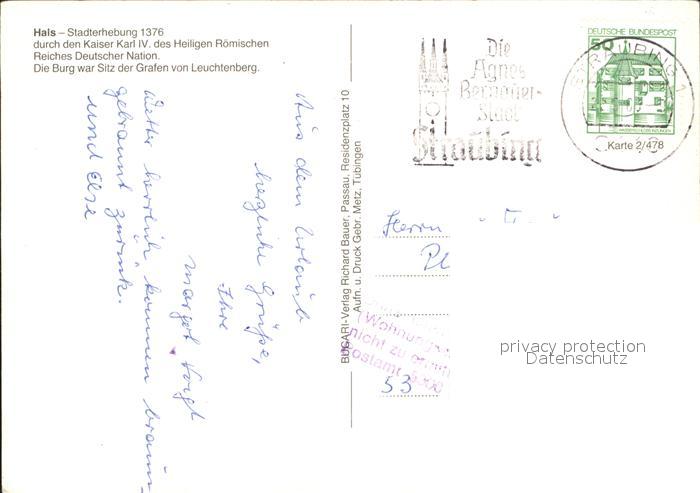 Hals – Stadterhebung 1376
durch den Kaiser Karl IV. des Heiligen Römischen
Reiches Deutscher Nation.
Die Burg war Sitz der Grafen von Leuchtenberg.
Aus dem Urlaub
herzliche Grüße,
Ihre
Margot Voigt
Wetter herrlich können braun-
gebrannt zurück.
und Else
BUGARI-Verlag Richard Bauer, Passau, Residenzplatz 10
Aufn. u. Druck Gebr. Metz, Tübingen
Die
Agnes
Bernauer-
Stadt
Straubing
DEUTSCHE BUNDESPOST
50
STRAUBING 1
Karte 2/478
Herrn
(Wohnung
nicht zu
Postamt 5300
53
privacy protection
Datenschutz